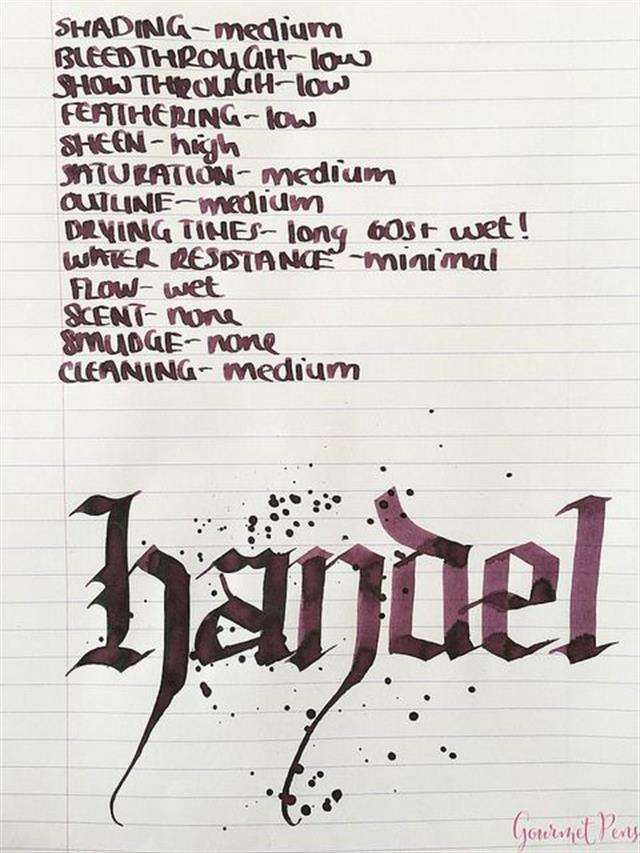 SHADING - medium
BLEEDTHROUGH - low
SHOWTHROUGH - low
FEATHERING - low
SHEEN - high
SATURATION - medium
OUTLINE - medium
DRYING TIMES - long 60s+ wet!
WATER RESISTANCE - minimal
FLOW - wet
SCENT - none
SMUDGE - none
CLEANING - medium
handel
Gourmet Pens